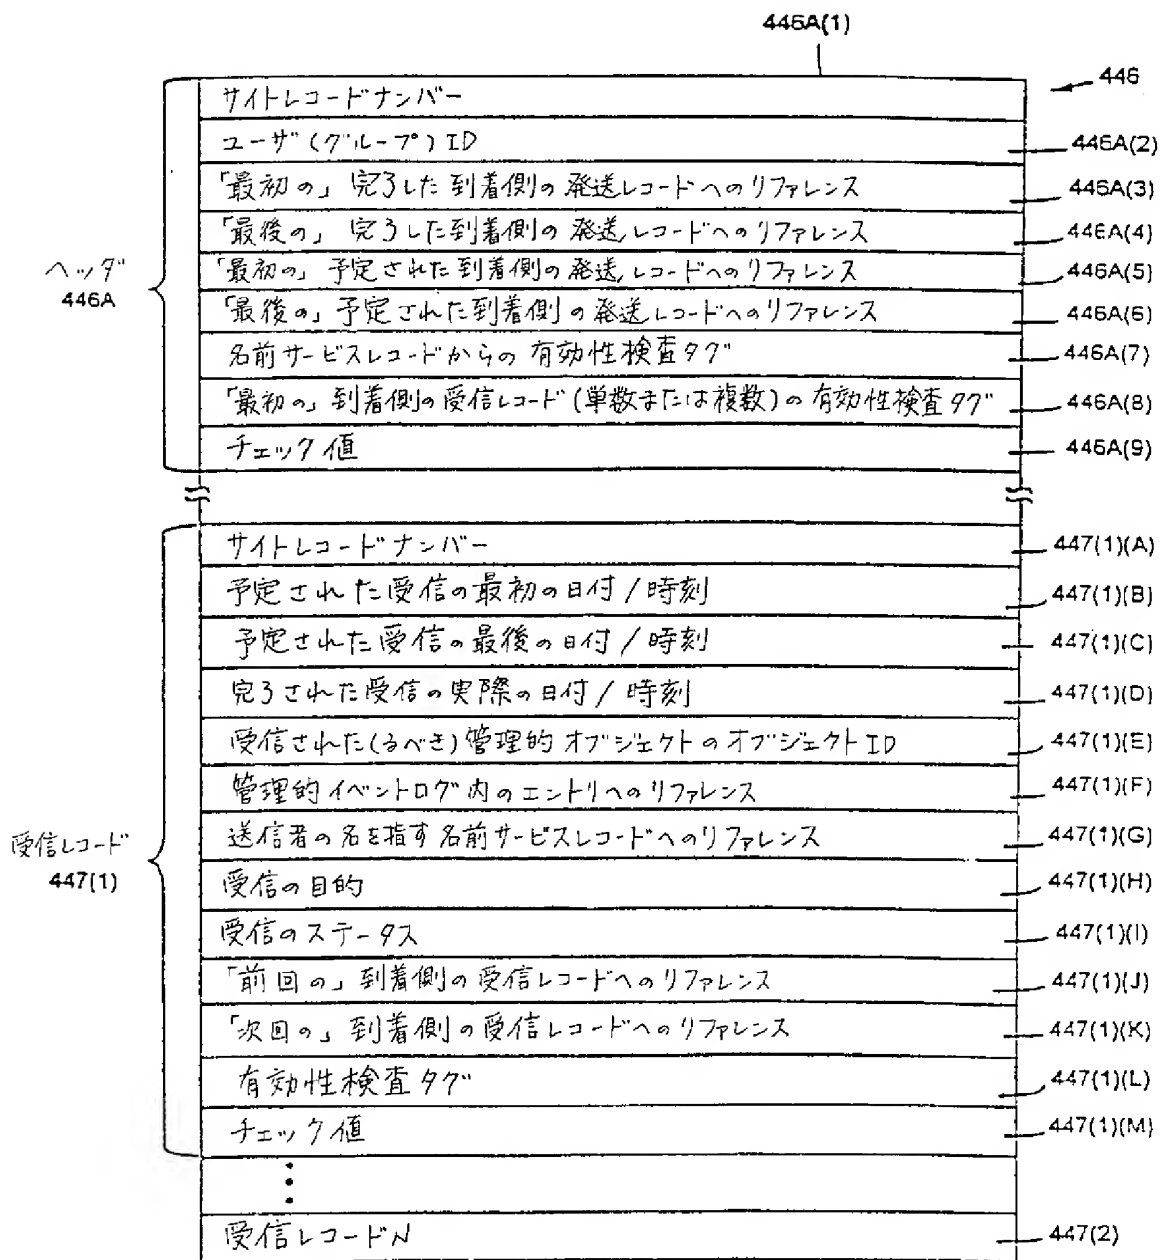 446A(1)
446
サイトレコードナンバー
ユーザ(グループ)ID 446A(2)
「最初の」完了した到着側の発送レコードへのリファレンス 446A(3)
「最後の」完了した到着側の発送レコードへのリファレンス 446A(4)
「最初の」予定された到着側の発送レコードへのリファレンス 446A(5)
「最後の」予定された到着側の発送レコードへのリファレンス 446A(6)
名前サービスレコードからの有効性検査タグ 446A(7)
「最初の」到着側の受信レコード(単数または複数)の有効性検査タグ 446A(8)
チェック値 446A(9)
ヘッダ
446A
サイトレコードナンバー 447(1)(A)
予定された受信の最初の日付/時刻 447(1)(B)
予定された受信の最後の日付/時刻 447(1)(C)
完了された受信の実際の日付/時刻 447(1)(D)
受信された(るべき)管理的オブジェクトのオブジェクトID 447(1)(E)
管理的イベントログ内のエントリへのリファレンス 447(1)(F)
送信者の名を指す名前サービスレコードへのリファレンス 447(1)(G)
受信の目的 447(1)(H)
受信のステータス 447(1)(I)
「前回の」到着側の受信レコードへのリファレンス 447(1)(J)
「次回の」到着側の受信レコードへのリファレンス 447(1)(K)
有効性検査タグ 447(1)(L)
チェック値 447(1)(M)
受信レコード
447(1)
受信レコードN 447(2)